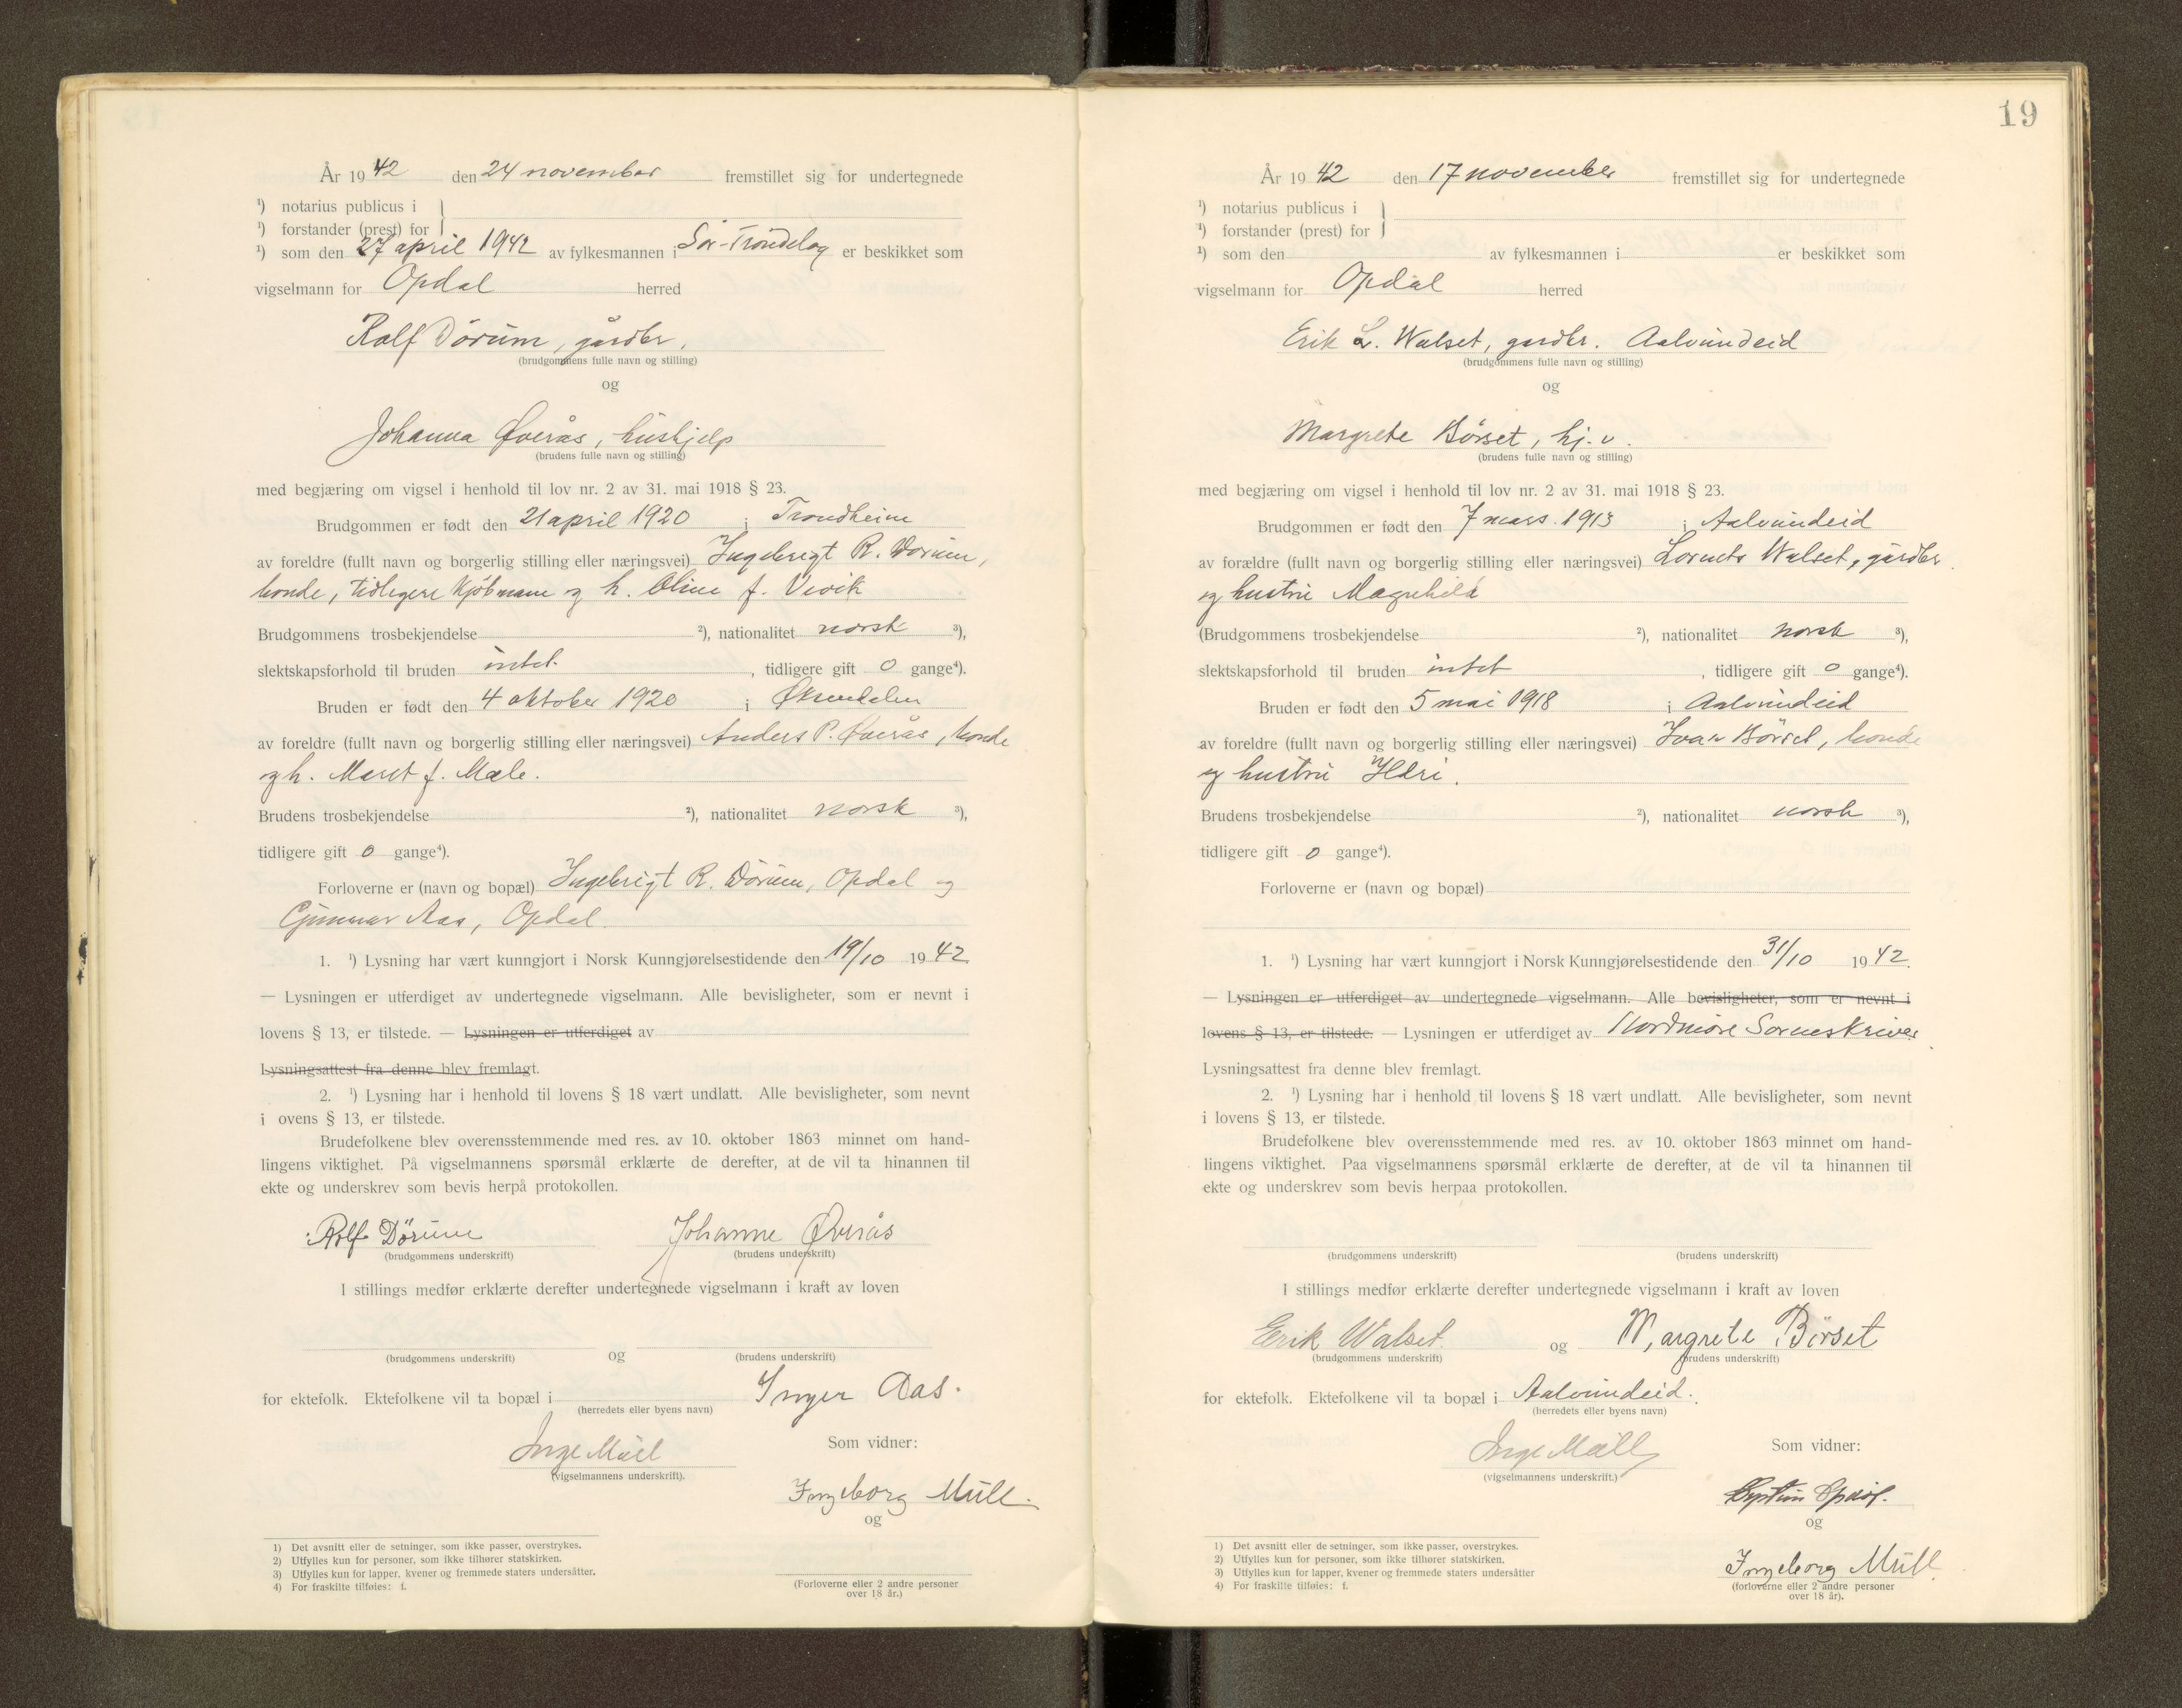 År 1942 den 24 november fremstillet sig for undertegnede
¹) notarius publicus i
¹) forstander (prest) for
¹) som den 27 april 1942 av fylkesmannen i Sør-Trøndelag er beskikket som
vigselmann for Opdal herred
Rolf Dørum, gårdbr.
(brudgommens fulle navn og stilling)
og
Johanna Øverås, hushjelp
(brudens fulle navn og stilling)
med begjæring om vigsel i henhold til lov nr. 2 av 31. mai 1918 § 23.
Brudgommen er født den 21 april 1920 i Trondheim
av foreldre (fullt navn og borgerlig stilling eller næringsvei) Ingebrigt R. Dørum,
bonde, tidligere kjøbmann og h. Oline f. Vevik
Brudgommens trosbekjendelse ²), nationalitet norsk ³),
slektskapsforhold til bruden intet. , tidligere gift 0 gange⁴).
Bruden er født den 4 oktober 1920 i Øksendalen
av foreldre (fullt navn og borgerlig stilling eller næringsvei) Anders P. Øverås, bonde
og h. Maret f. Mæle.
Brudens trosbekjendelse ²), nationalitet norsk ³),
tidligere gift 0 gange⁴).
Forloverne er (navn og bopæl) Ingebrigt R. Dørum, Opdal og
Gunnar Aas, Opdal.
1. ¹) Lysning har vært kunngjort i Norsk Kunngjørelsestidende den 19/10 1942
— Lysningen er utferdiget av undertegnede vigselmann. Alle bevisligheter, som er nevnt i
lovens § 13, er tilstede. — Lysningen er utferdiget av
Lysningsattest fra denne blev fremlagt.
2. ¹) Lysning har i henhold til lovens § 18 vært undlatt. Alle bevisligheter, som nevnt
i ovens § 13, er tilstede.
Brudefolkene blev overensstemmende med res. av 10. oktober 1863 minnet om hand-
lingens viktighet. På vigselmannens spørsmål erklærte de derefter, at de vil ta hinannen til
ekte og underskrev som bevis herpå protokollen.
Rolf Dörum Johanne Øverås
(brudgommens underskrift) (brudens underskrift)
I stillings medfør erklærte derefter undertegnede vigselmann i kraft av loven
og
(brudgommens underskrift) (brudens underskrift)
for ektefolk. Ektefolkene vil ta bopæl i Inger Aas.
(herredets eller byens navn)
Inge Müll Som vidner:
(vigselmannens underskrift).
Ingeborg Müll.
og
1) Det avsnitt eller de setninger, som ikke passer, overstrykes.
2) Utfylles kun for personer, som ikke tilhører statskirken.
3) Utfylles kun for lapper, kvener og fremmede staters undersåtter.
4) For fraskilte tilføies: f.
(Forloverne eller 2 andre personer
over 18 år.)
19
År 1942 den 17 november fremstillet sig for undertegnede
¹) notarius publicus i
¹) forstander (prest) for
¹) som den av fylkesmannen i er beskikket som
vigselmann for Opdal herred
Erik L. Walset, gardbr. Aalvundeid
(brudgommens fulle navn og stilling)
og
Margrete Børset, hj.v.
(brudens fulle navn og stilling)
med begjæring om vigsel i henhold til lov nr. 2 av 31. mai 1918 § 23.
Brudgommen er født den 7 mars 1913 i Aalvundeid
av forældre (fullt navn og borgerlig stilling eller næringsvei) Walset, gårdbr.
og hustru Magnhild
(Brudgommens trosbekjendelse ²), nationalitet norsk ³),
slektskapsforhold til bruden intet , tidligere gift 0 gange⁴).
Bruden er født den 5 mai 1918 i Aalvundeid
av foreldre (fullt navn og borgerlig stilling eller næringsvei) Ivar Børset, bonde
og hustru Ildri.
Brudens trosbekjendelse ²), nationalitet norsk ³),
tidligere gift 0 gange⁴).
Forloverne er (navn og bopæl)
1. ¹) Lysning har vært kunngjort i Norsk Kunngjørelsestidende den 31/10 1942.
— Lysningen er utferdiget av undertegnede vigselmann. Alle bevisligheter, som er nevnt i
lovens § 13, er tilstede. — Lysningen er utferdiget av Nordmøre Sorenskriver
Lysningsattest fra denne blev fremlagt.
2. ¹) Lysning har i henhold til lovens § 18 vært undlatt. Alle bevisligheter, som nevnt
i lovens § 13, er tilstede.
Brudefolkene blev overensstemmende med res. av 10. oktober 1863 minnet om hand-
lingens viktighet. Paa vigselmannens spørsmål erklærte de derefter, at de vil ta hinannen til
ekte og underskrev som bevis herpaa protokollen.
(brudgommens underskrift) (brudens underskrift)
I stillings medfør erklærte derefter undertegnede vigselmann i kraft av loven
Erik Walset og Margrete Børset
(brudgommens underskrift) (brudens underskrift)
for ektefolk. Ektefolkene vil ta bopæl i Aalvundeid.
(herredets eller byens navn)
Inge Müll Som vidner:
(vigselmannens underskrift.)
og
Ingeborg Müll
1) Det avsnitt eller de setninger, som ikke passer, overstrykes.
2) Utfylles kun for personer, som ikke tilhører statskirken.
3) Utfylles kun for lapper, kvener og fremmede staters undersåtter
4) For fraskilte tilføies: f.
(forloverne eller 2 andre personer
over 18 år).